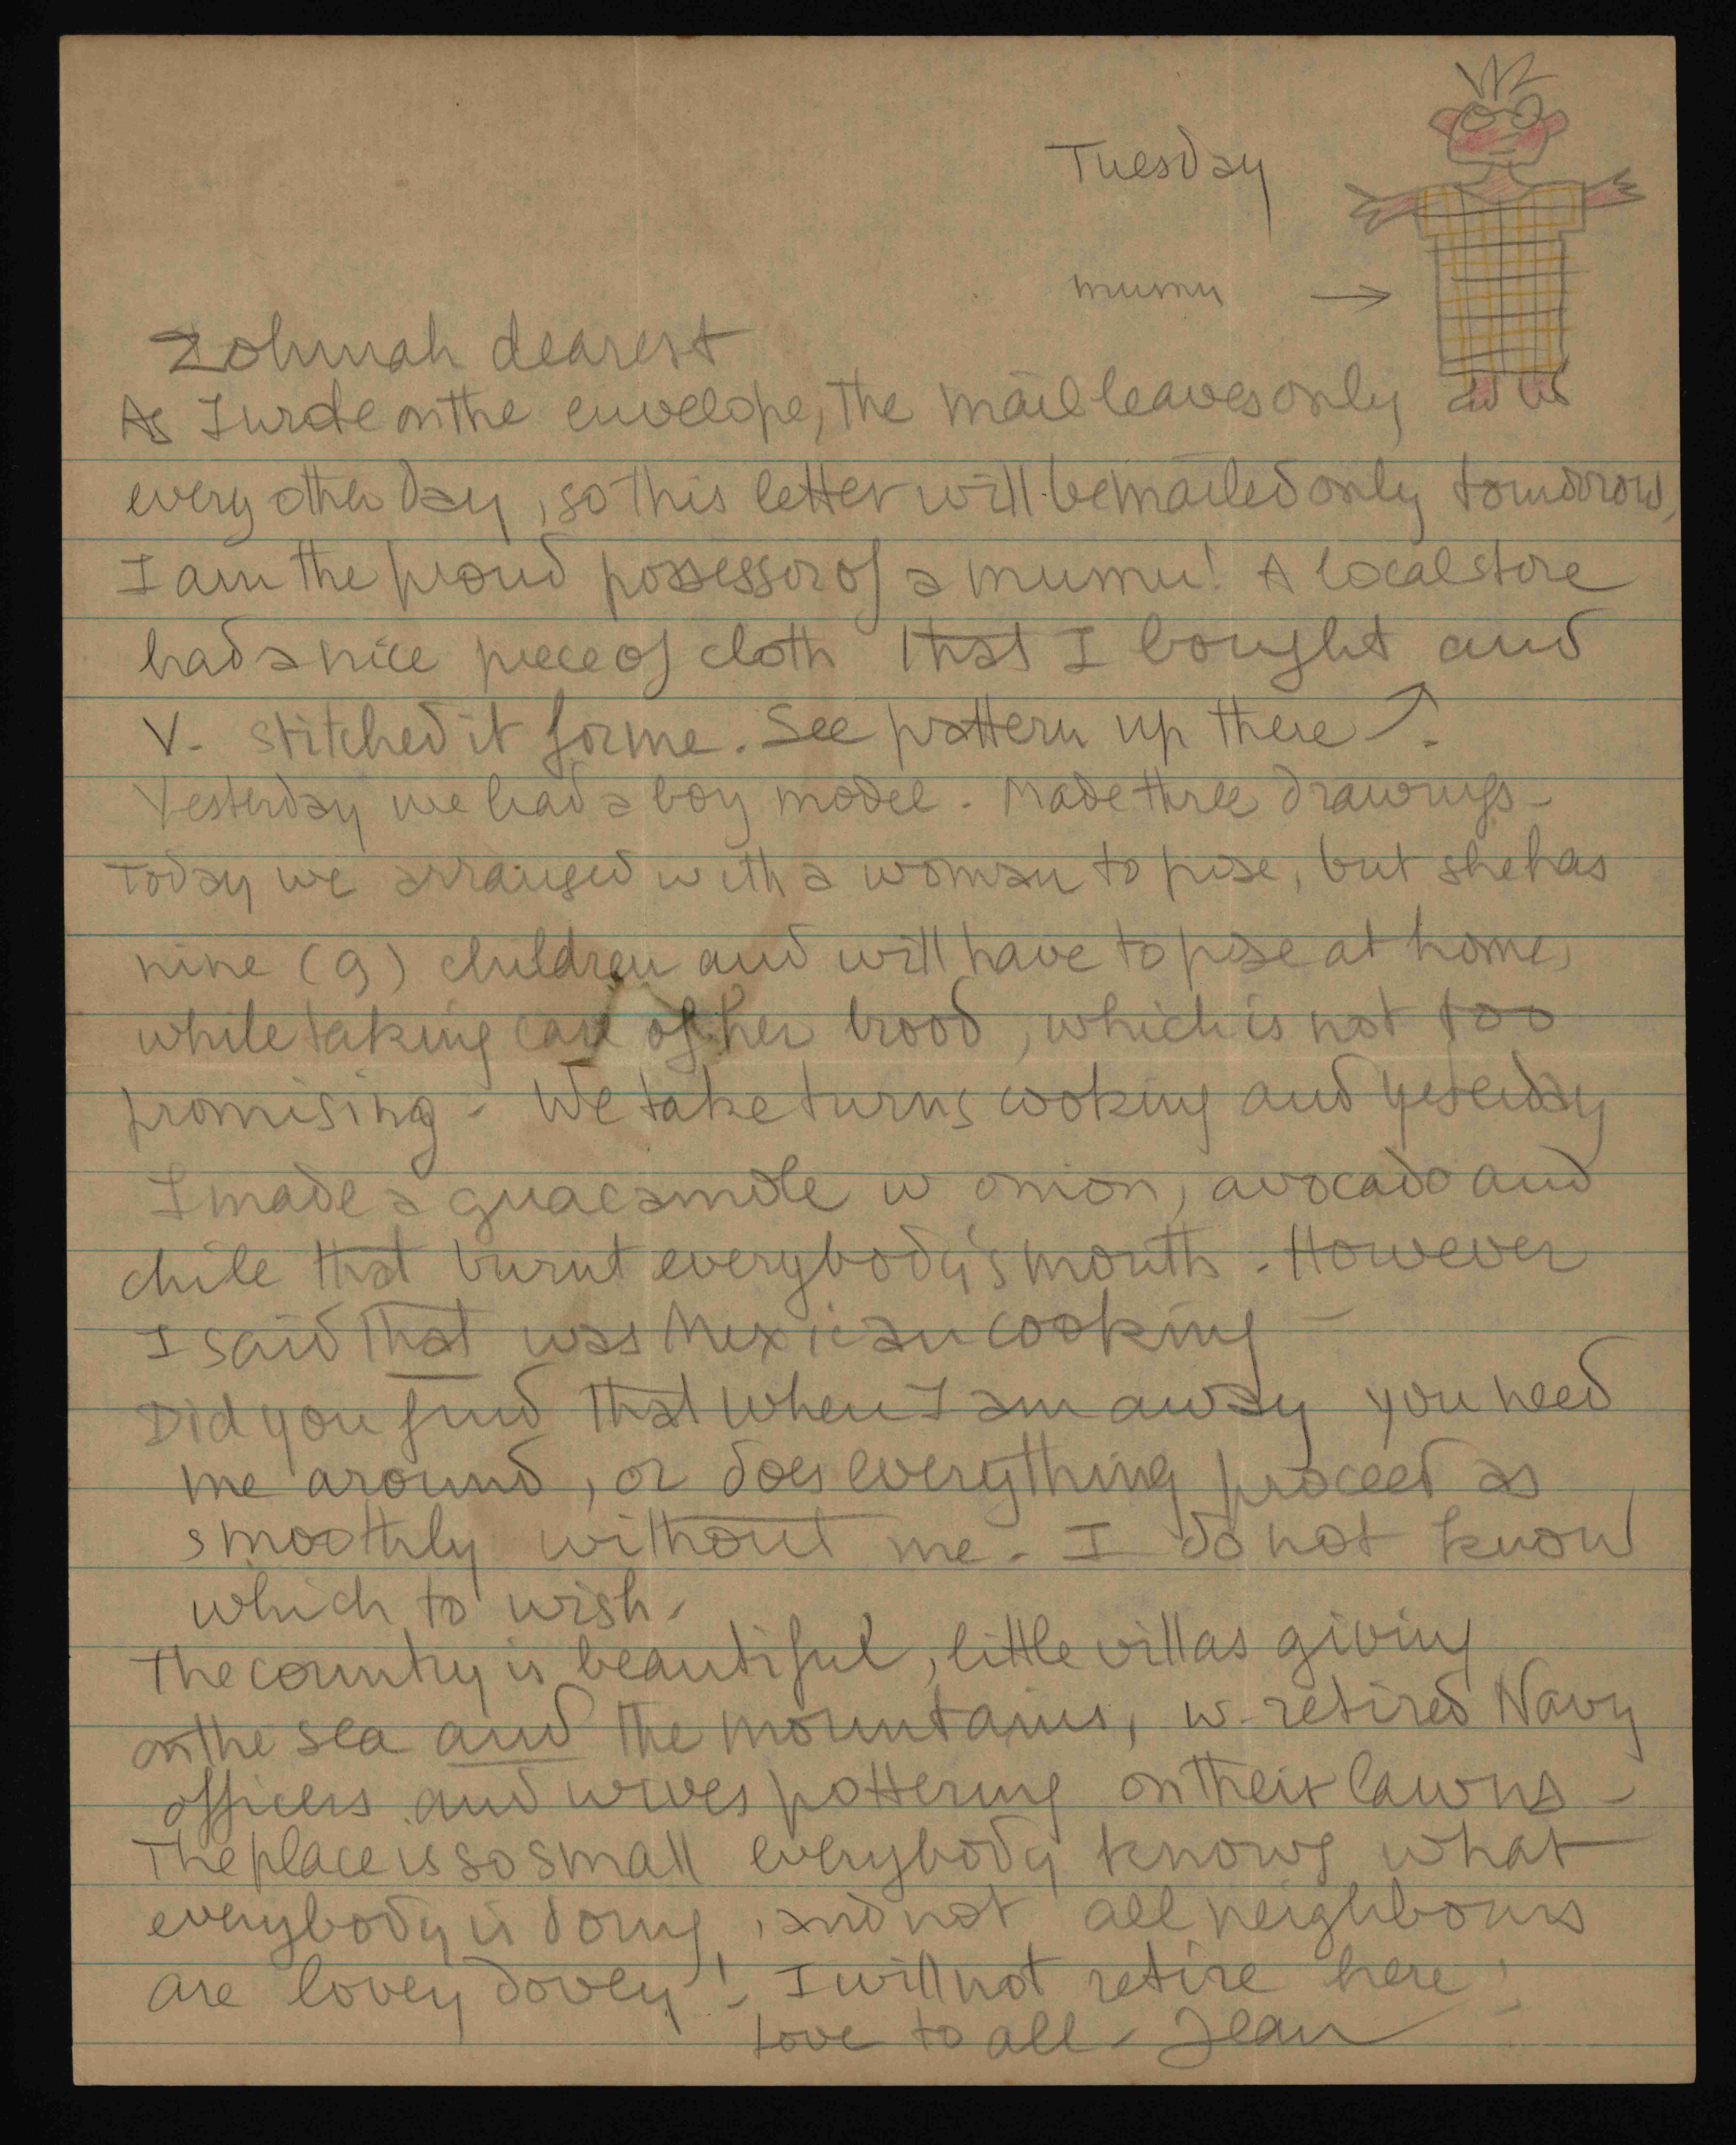 Tuesday
mumu →
Zohmah dearest
As I wrote on the envelope, the mail leaves only
every other day, so this letter will be mailed only tomorrow,
I am the proud possessor of a mumu! A local store
had a nice piece of cloth that I bought and
V. stitched it for me. See pattern up there ↗.
Yesterday we had a boy model. Made three drawings -
Today we arranged with a woman to pose, but she has
nine (9) children and will have to pose at home,
while taking care of her brood, which is not too
promising - We take turns cooking and yesterday
I made a guacamole w onion, avocado and
chile that burnt everybody's mouth. However
I said that was Mexican cooking -
Did you find that when I am away you need
me around, or does everything proceed as
smoothly without me - I do not know
which to wish.
The country is beautiful, little villas giving
on the sea and the mountains, w. retired Navy
officers and wives pottering on their lawns -
The place is so small everybody knows what
everybody is doing, and not all neighbours
are lovey dovey! I will not retire here!
Love to all - Jean